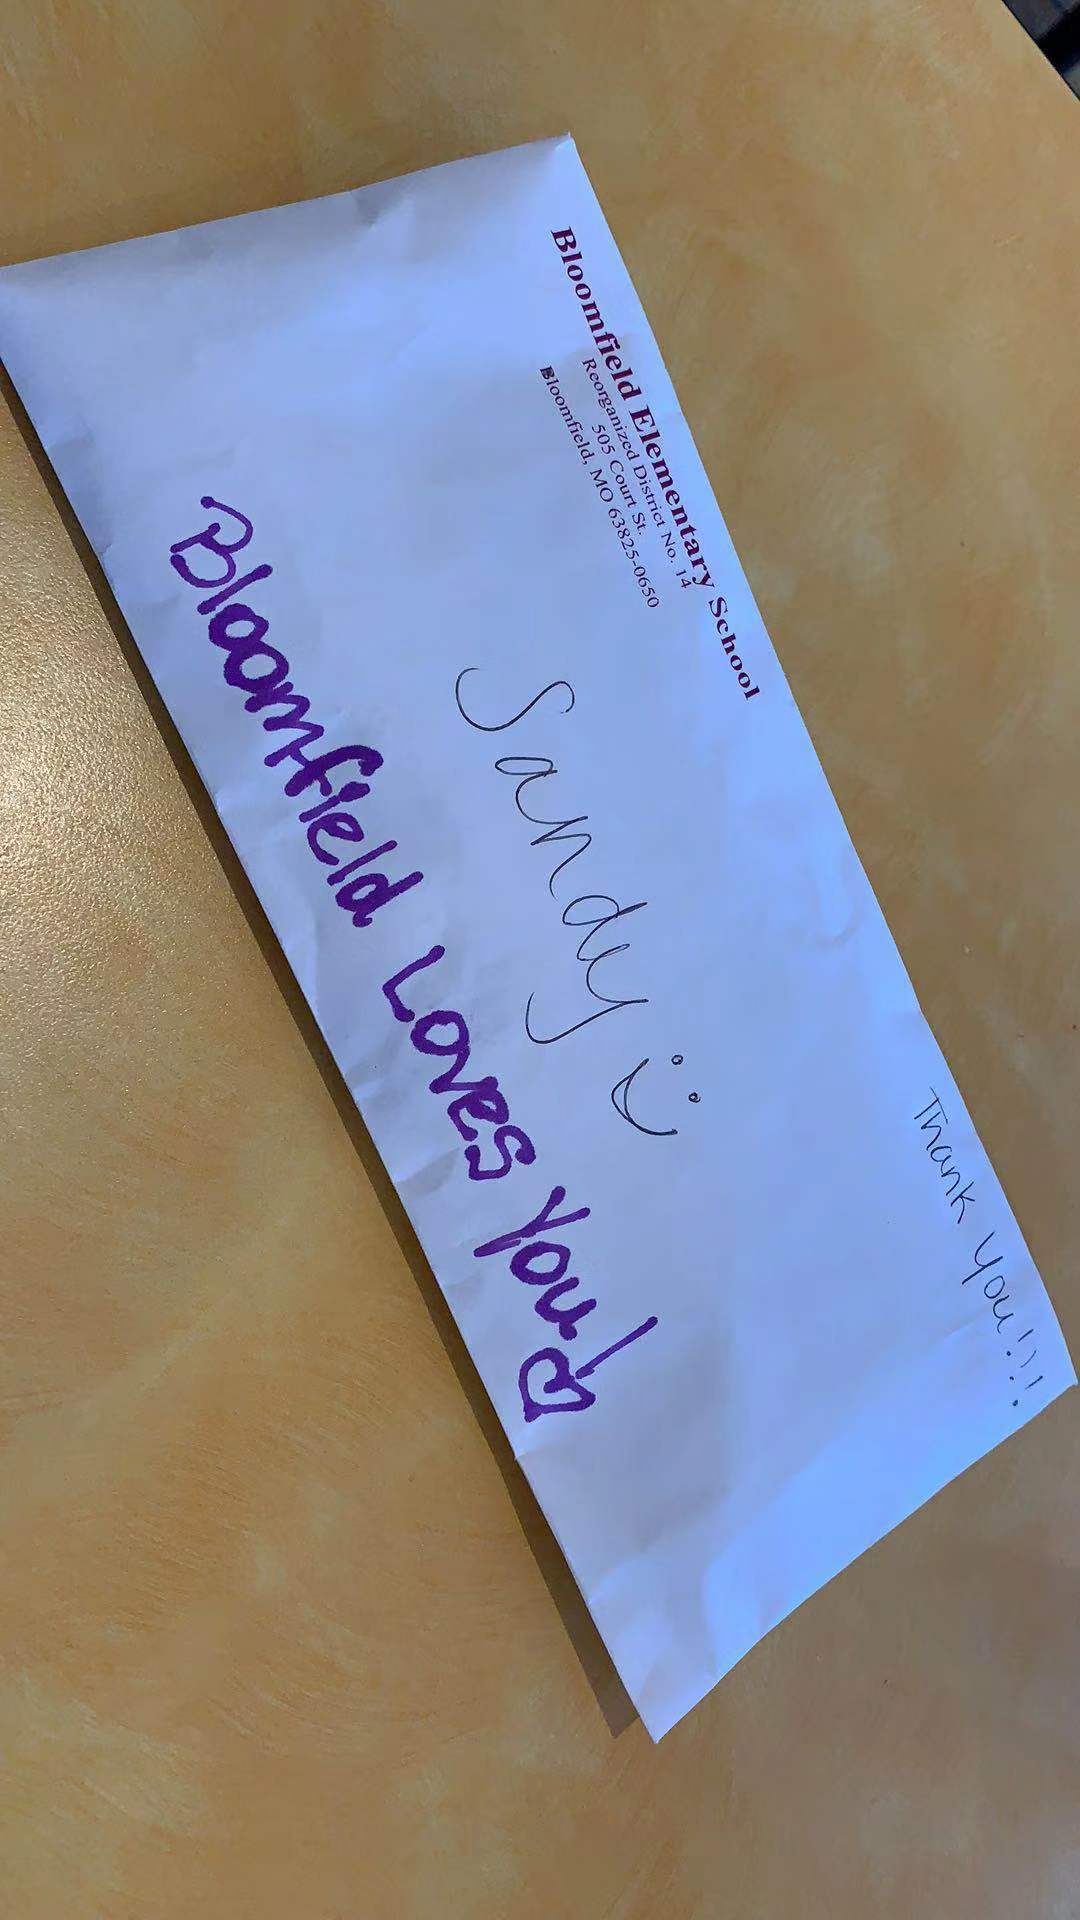 Bloomfield Elementary School
Reorganized District No. 14
505 Court St.
Bloomfield, MO 63825-0650
Thank you!!!
Sandy
Bloomfield Loves You!